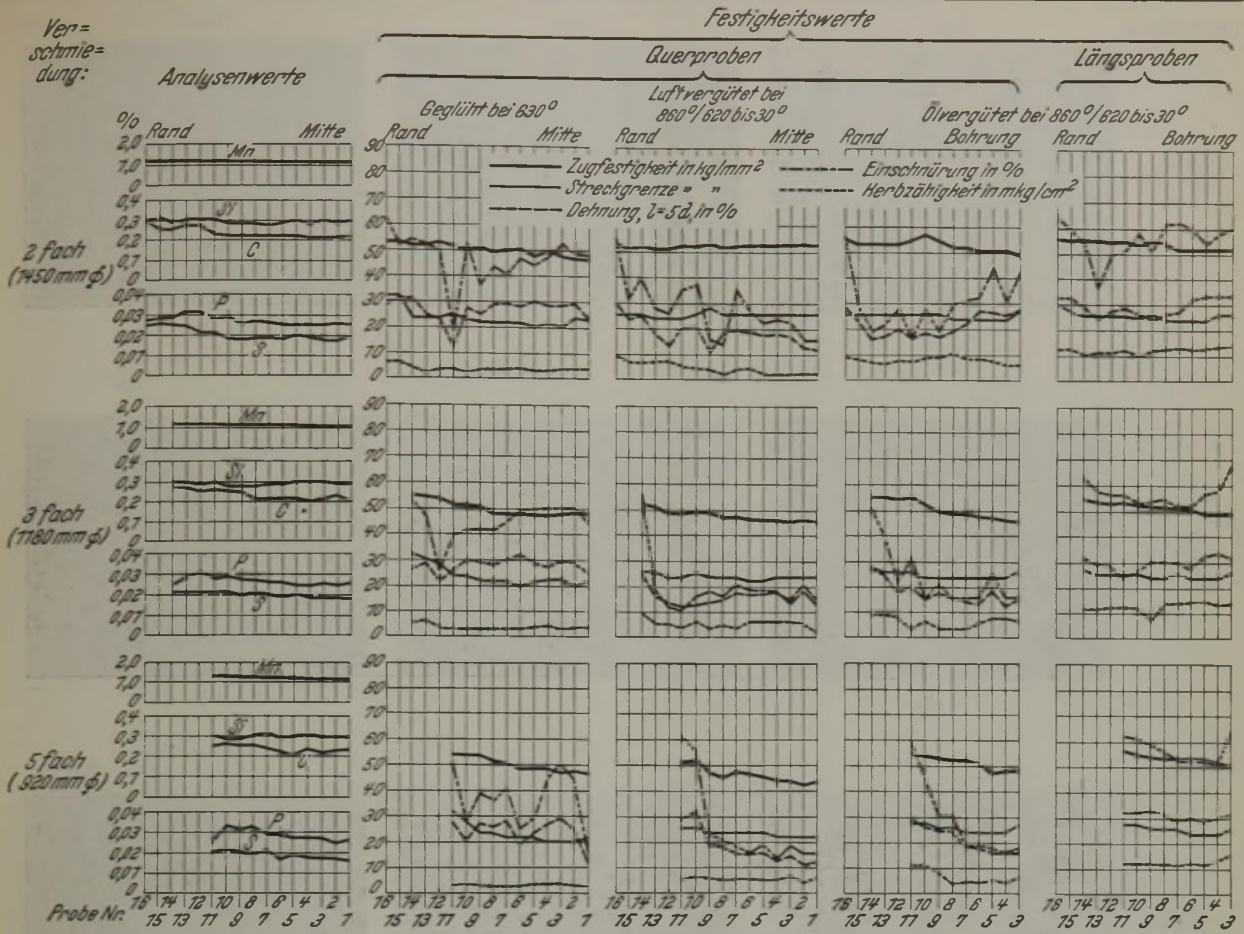 Festigkeitswerte
Ver=
schmie=
dung:
Analysenwerte
Querproben
Längsproben
Geglüht bei 630°
Luftvergütet bei
860°/620 bis 30°
Ölvergütet bei 860°/620 bis 30°
% Rand Mitte
Rand Mitte
Rand Mitte
Rand Bohrung
Rand Bohrung
Zugfestigkeit in kg/mm²
Streckgrenze " "
Dehnung, l=5d, in %
Einschnürung in %
Kerbzähigkeit in mkg/cm²
2 fach
(1450 mm ϕ)
2,0
1,0
0
Mn
0,4
0,3
0,2
0,1
0
Si
C
0,04
0,03
0,02
0,01
0
P
S
90
80
70
60
50
40
30
20
10
0
3 fach
(1180 mm ϕ)
2,0
1,0
0
Mn
0,4
0,3
0,2
0,1
0
Si
C
0,04
0,03
0,02
0,01
0
P
S
90
80
70
60
50
40
30
20
10
0
5 fach
(920 mm ϕ)
2,0
1,0
0
Mn
0,4
0,3
0,2
0,1
0
Si
C
0,04
0,03
0,02
0,01
0
P
S
90
80
70
60
50
40
30
20
10
0
Probe Nr.
16 14 12 10 8 6 4 2
15 13 11 9 7 5 3 1
16 14 12 10 8 6 4 2
15 13 11 9 7 5 3 1
16 14 12 10 8 6 4 2
15 13 11 9 7 5 3 1
16 14 12 10 8 6 4
15 13 11 9 7 5 3
16 14 12 10 8 6 4
15 13 11 9 7 5 3